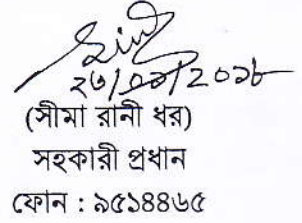 ২৩/০৯/২০১৮
(সীমা রানী ধর)
সহকারী প্রধান
ফোন : ৯৫১৪৪৬৫